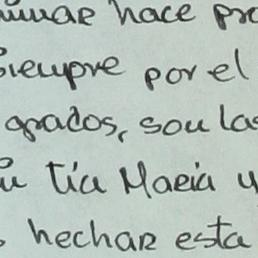 hace pro
siempre por el
grados, son las
tia Maria y
hechar esta